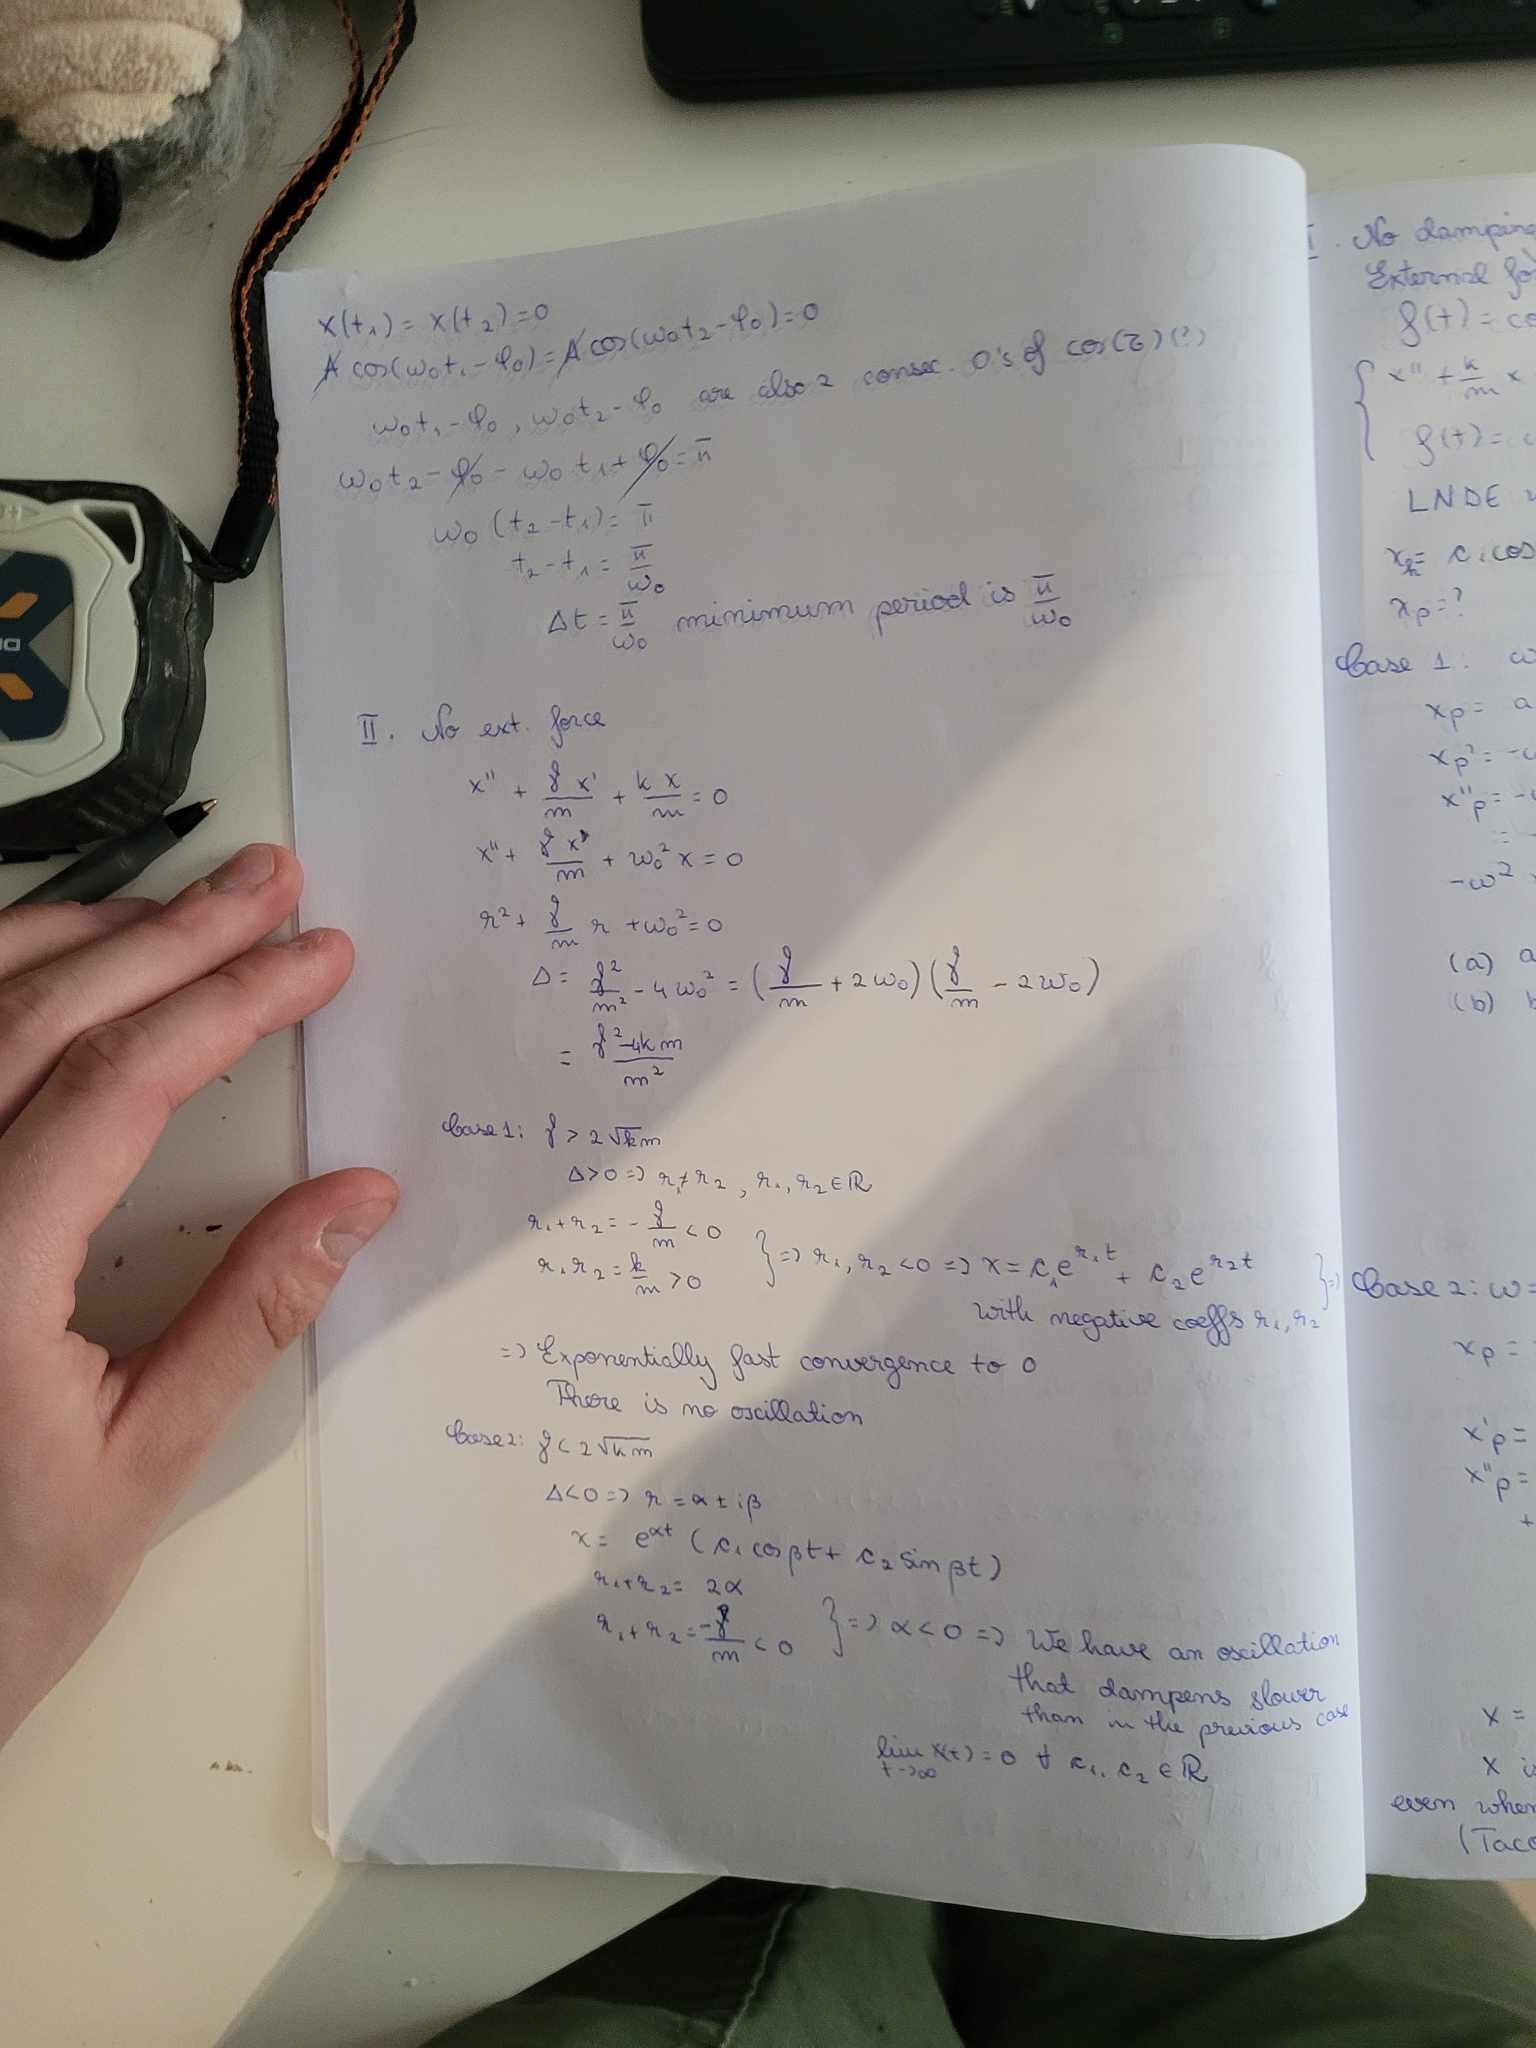 x(t₁) = x(t₂) = 0
A cos(ω₀t₁ - φ₀) = A cos(ω₀t₂ - φ₀) = 0
ω₀t₁ - φ₀, ω₀t₂ - φ₀ are also 2 consec. 0's of cos(τ) (!)
ω₀t₂ - φ₀ - ω₀t₁ + φ₀ = π
ω₀(t₂ - t₁) = π
t₂ - t₁ = π/ω₀
Δt = π/ω₀ minimum period is π/ω₀
II. No ext. force
x'' + γx'/m + kx/m = 0
x'' + γx'/m + ω₀²x = 0
r² + γ/m r + ω₀² = 0
Δ = γ²/m² - 4ω₀² = (γ/m + 2ω₀)(γ/m - 2ω₀)
= γ²-4km/m²
Case 1: γ > 2√km
Δ>0 => r₁≠r₂, r₁, r₂ ∈ ℝ
r₁+r₂ = -γ/m < 0
r₁r₂ = k/m > 0 } => r₁, r₂ < 0 => x = c₁e^r₁t + c₂e^r₂t
with negative coeffs r₁, r₂ } =>
=> Exponentially fast convergence to 0
There is no oscillation
Case 2: γ < 2√km
Δ<0 => r = α ± iβ
x = e^αt (c₁ cos βt + c₂ sin βt)
r₁+r₂ = 2α
r₁+r₂ = -γ/m < 0 } => α < 0 => We have an oscillation
that dampens slower
than in the previous case
lim t->∞ x(t) = 0 ∀ c₁, c₂ ∈ ℝ
I. No damping
External
f(t) =
x'' + k/m x
f(t) =
LNDE
xₕ = c₁cos
xp = ?
Case 1: ω
xp = a
xp' = -ω
x''p = -ω
= -
-ω²
(a) a
(b) b
Case 2: ω =
xp =
x'p =
x''p =
+
x =
x
even when